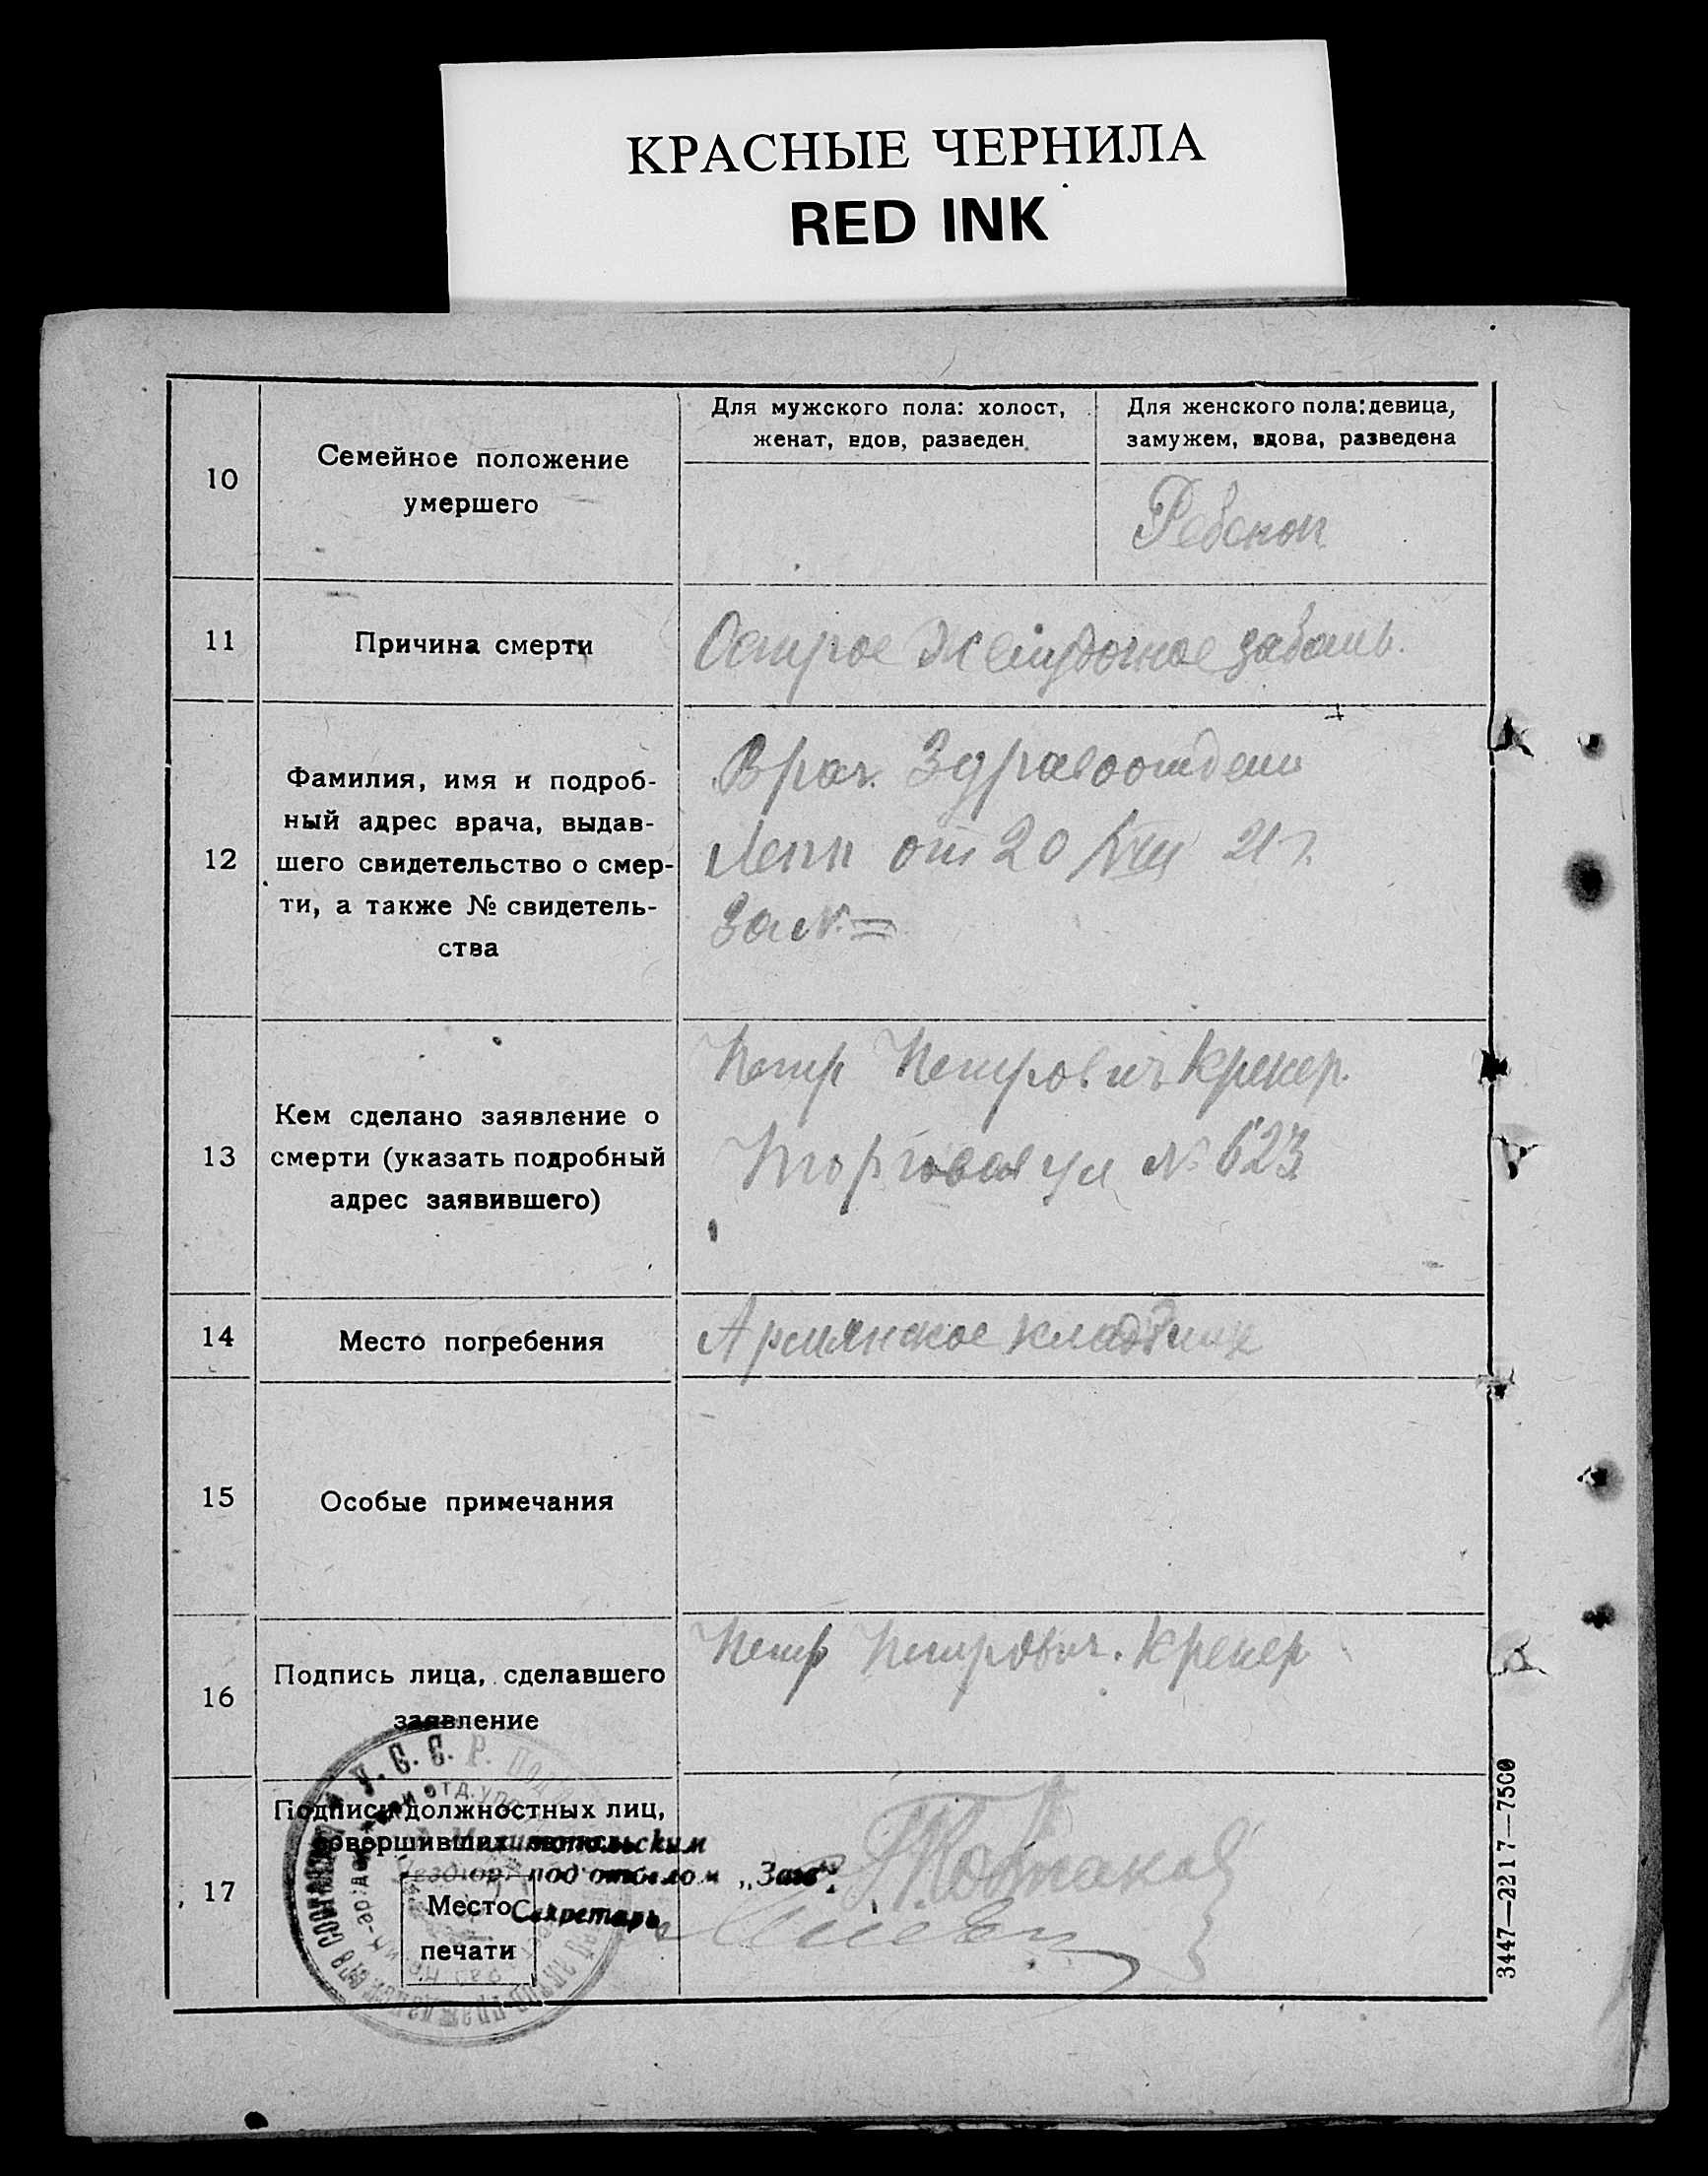 КРАСНЫЕ ЧЕРНИЛА
RED INK
10
Семейное положение
умершего
Для мужского пола: холост,
женат, вдов, разведен
Для женского пола: девица,
замужем, вдова, разведена
Ребенок
11
Причина смерти
Острое желудочное заболь.
12
Фамилия, имя и подроб-
ный адрес врача, выдав-
шего свидетельство о смер-
ти, а также № свидетель-
ства
Врач. Здравоотдела
от 20/VIII 21 г.
За № =
13
Кем сделано заявление о
смерти (указать подробный
адрес заявившего)
Петр Петрович Крекер.
Торговая ул № 623
14
Место погребения
Армянское кладбище
15
Особые примечания
16
Подпись лица, сделавшего
заявление
Петр Петрович. Крекер
17
Подписи должностных лиц,
совершивших запись
под отделом „Загс".
Секретарь
Место
печати
У. С. С. Р.
3447—2217—7500